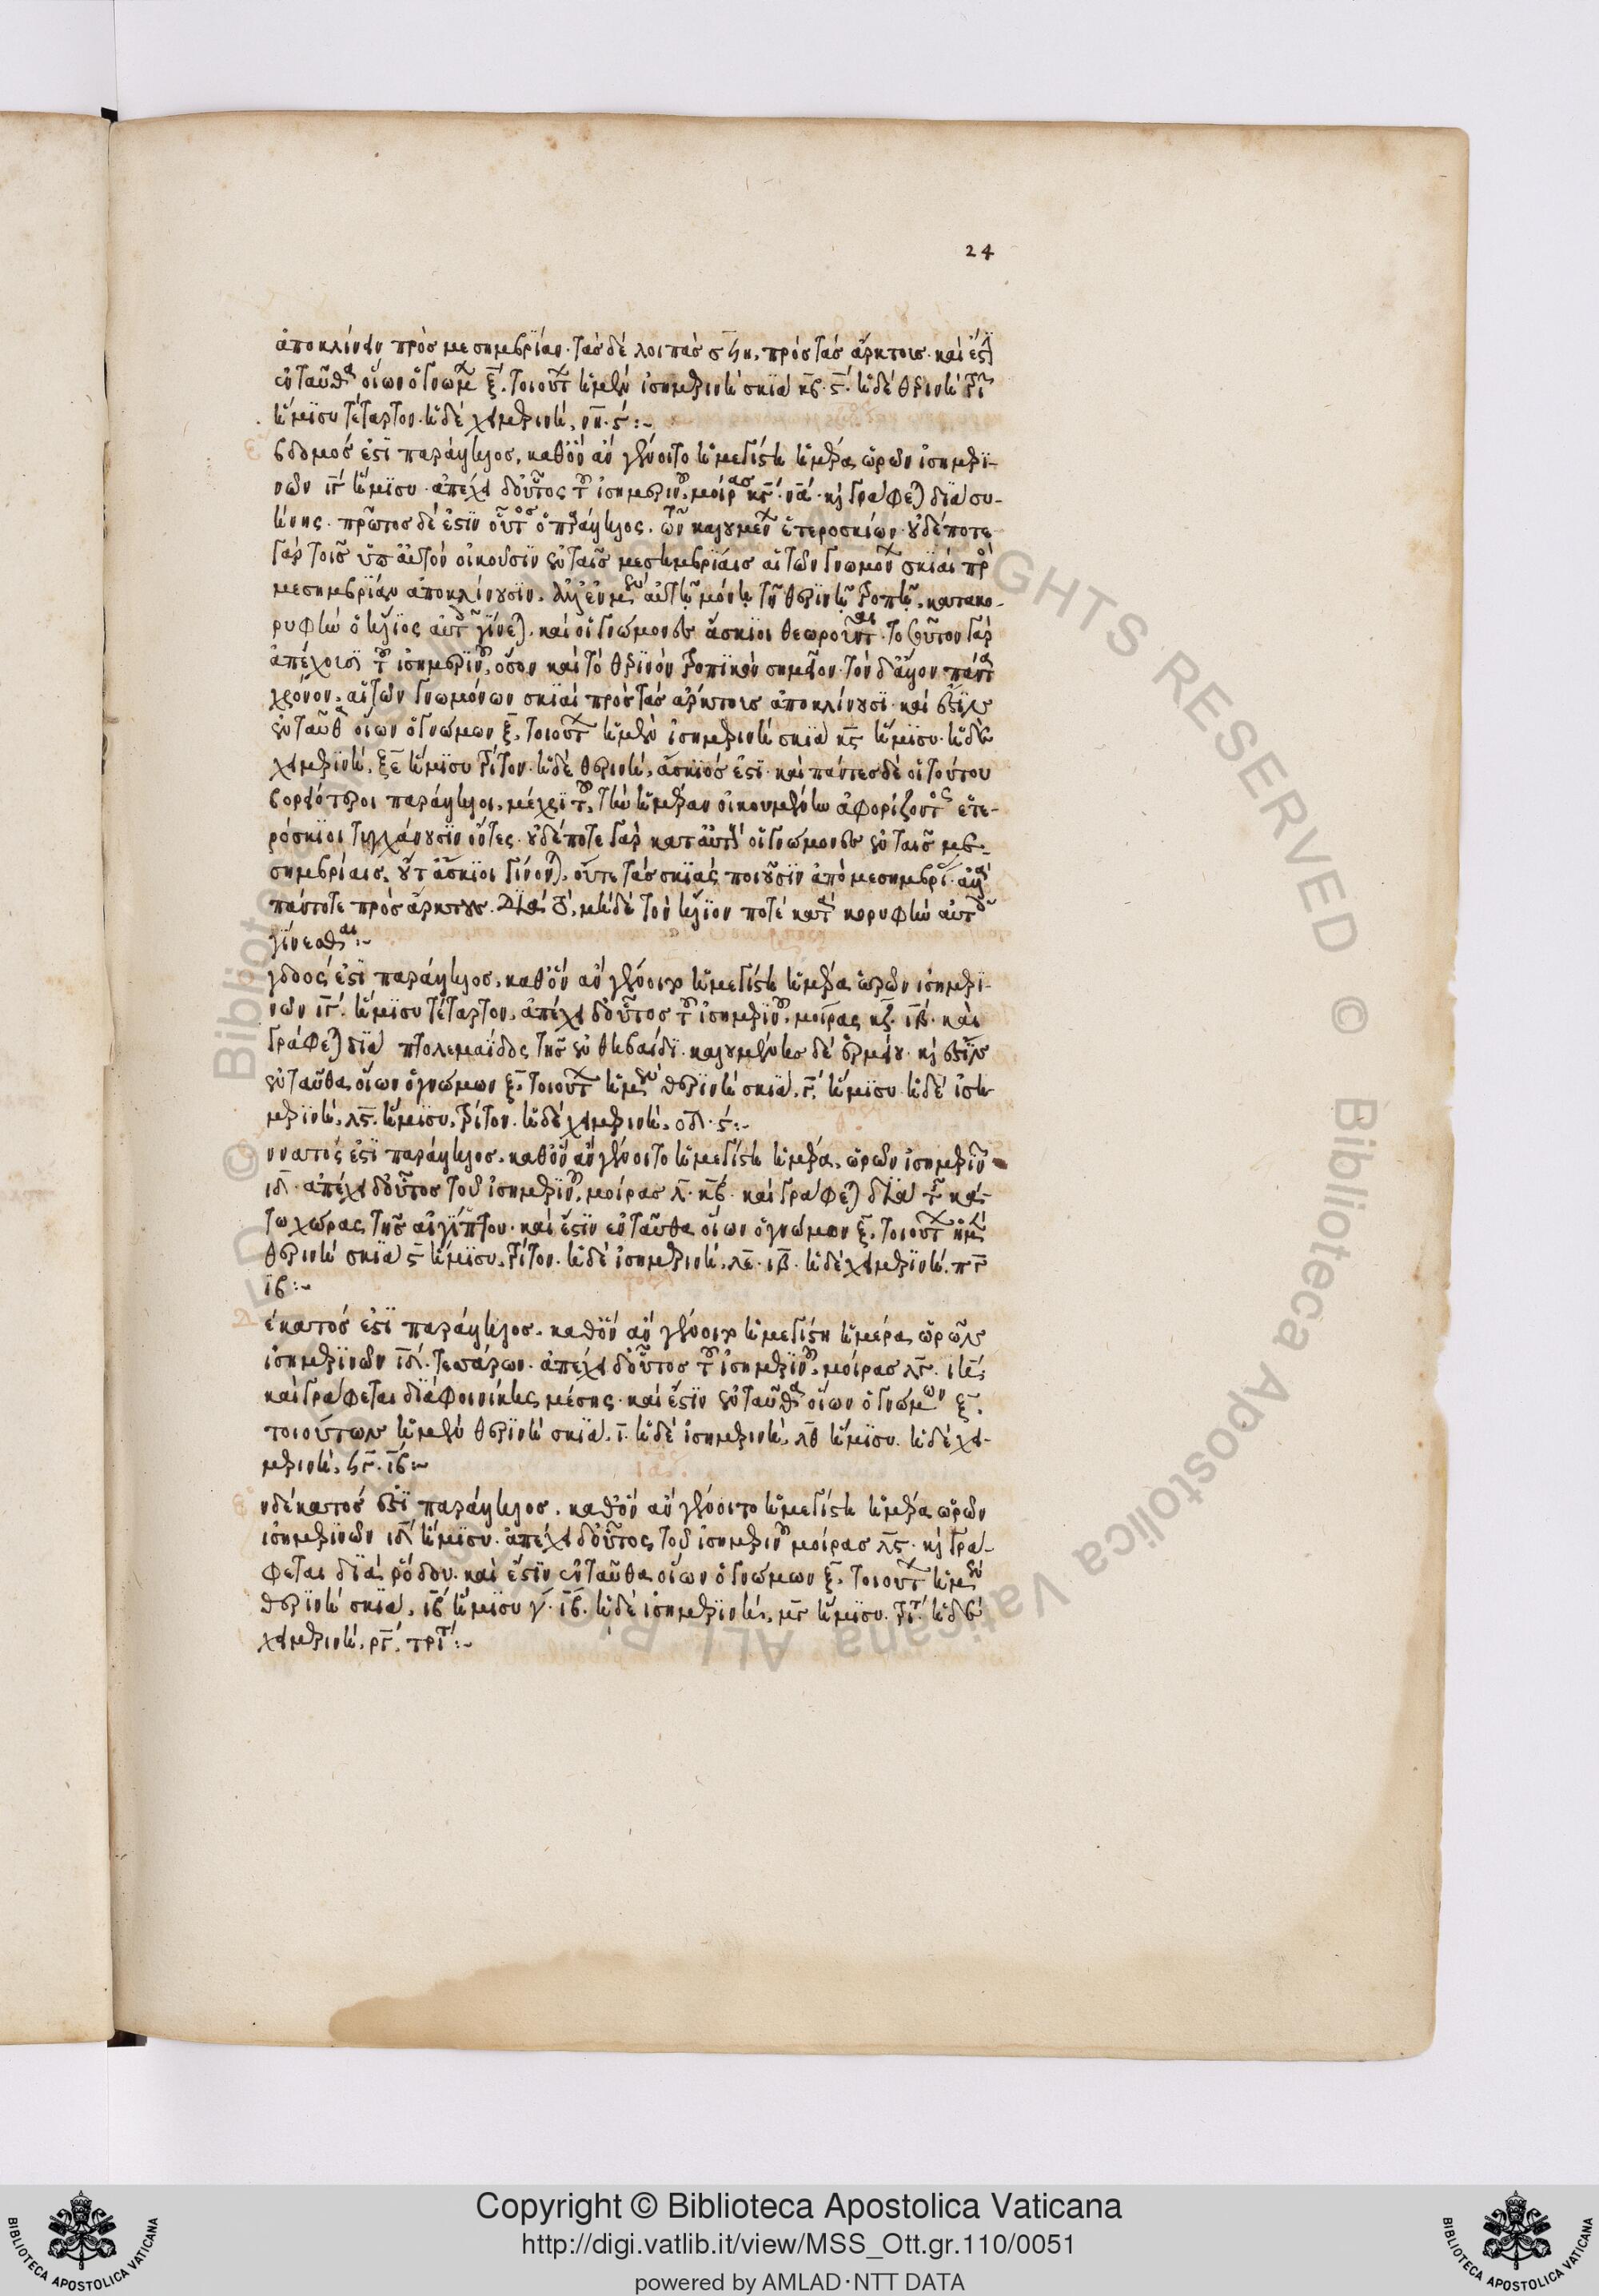 24
ἀποκλίνειν πρὸς μεσημβρίαν· τὰς δὲ λοιπὰς σϟη, πρὸς τὰς ἄρκτοις· καὶ ἔστιν
ἐνταῦθα οἵων ὁ γνώμων ξ̄, τοιούτων ἡ μὲν ἰσημερινὴ σκιὰ κβ̄· ϛ̄· ἡ δὲ θερινὴ τρι
ἥμισυ τέταρτον· ἡ δὲ χειμερινὴ, νη̄· ϛ:~
βδομός ἐστι παράλληλος, καθ' ὃν ἂν γένοιτο ἡ μεγίστη ἡμέρα ὡρῶν ἰσημερι-
νῶν ιγ̄ ἥμισυ· ἀπέχει δ' οὗτος τοῦ ἰσημερινοῦ, μοίρας κγ̄· νᾱ· καὶ γράφεται διὰ συ-
ήνης· πρῶτος δέ ἐστιν οὗτος ὁ παράλληλος, τῶν καλουμένων ἑτεροσκίων· οὐδέποτε
γὰρ τοῖς ὑπ' αὐτὸν οἰκοῦσιν ἐν ταῖς μεσημβρίαις αἱ τῶν γνωμόνων σκιαὶ πρὸς
μεσημβρίαν ἀποκλίνουσιν, ἀλλ' ἐν μὲν αὐτῇ μόνῃ τῇ θερινῇ τροπῇ, κατακο-
ρυφὴν ὁ ἥλιος αὐτῶν γίνεται, καὶ οἱ γνώμονες ἄσκιοι θεωροῦνται· τοσοῦτον γὰρ
ἀπέχουσι τοῦ ἰσημερινοῦ, ὅσον καὶ τὸ θερινὸν τροπικὸν σημεῖον· τὸν δ' ἄλλον πάντα
χρόνον, αἱ τῶν γνωμόνων σκιαὶ πρὸς τὰς ἄρκτοις ἀποκλίνουσι· καὶ ἔστιν
ἐνταῦθα οἵων ὁ γνώμων ξ̄, τοιούτων ἡ μὲν ἰσημερινὴ σκιὰ κϛ̄ ἥμισυ· ἡ δὲ
χειμερινὴ, ξε̄ ἥμισυ τρίτον· ἡ δὲ θερινὴ, ἄσκιός ἐστι· καὶ πάντες δὲ οἱ τούτου
βορειότεροι παράλληλοι, μέχρι τοῦ, τὴν ἡμέραν οἰκουμένην ἀφορίζοντος ἑτε-
ρόσκιοι τυγχάνουσιν ὄντες· οὐδέποτε γὰρ κατ' αὐτοὺς οἱ γνώμονες ἐν ταῖς με-
σημβρίαις, οὔτ' ἄσκιοι γίνονται, οὔτε τὰς σκιὰς ποιοῦσιν ἀπὸ μεσημβρίας· ἀλλὰ
πάντοτε πρὸς ἄρκτους. Διὰ τὸ, μηδὲ τὸν ἥλιον ποτὲ κατὰ κορυφὴν αὐτῶν
γίνεσθαι:~
γδοός ἐστι παράλληλος, καθ' ὃν ἂν γένοιτο ἡ μεγίστη ἡμέρα ὡρῶν ἰσημερι-
νῶν ιγ̄· ἥμισυ τέταρτον, ἀπέχει δ' οὗτος τοῦ ἰσημερινοῦ, μοίρας κζ̄· ιβ̄· καὶ
γράφεται διὰ πτολεμαΐδος τῆς ἐν θηβαΐδι· καλουμένης δὲ ἑρμείου· καὶ ἔστιν
ἐνταῦθα, οἵων ὁ γνώμων ξ̄, τοιούτων ἡ μὲν θερινὴ σκιὰ, γ̄, ἥμισυ· ἡ δὲ ἰση-
μερινὴ, λϛ̄ ἥμισυ, τρίτον· ἡ δὲ χειμερινὴ, οδ̄· ϛ:~
ννατός ἐστι παράλληλος, καθ' ὃν ἂν γένοιτο ἡ μεγίστη ἡμέρα, ὡρῶν ἰσημερινῶν
ιδ̄· ἀπέχει δ' οὗτος τοῦ ἰσημερινοῦ, μοίρας λ̄· κβ̄· καὶ γράφεται διὰ τῆς κά-
τω χώρας τῆς αἰγύπτου· καὶ ἔστιν ἐνταῦθα οἵων ὁ γνώμων ξ̄, τοιούτων ἡ μὲν
θερινὴ σκιὰ ϛ̄ ἥμισυ, τρίτον· ἡ δὲ ἰσημερινὴ, λε̄· ιβ̄· ἡ δὲ χειμερινὴ, πγ̄
ιβ:~
έκατός ἐστι παράλληλος, καθ' ὃν ἂν γένοιτο ἡ μεγίστη ἡμέρα ὡρῶν
ἰσημερινῶν ιδ̄· τεσσάρων· ἀπέχει δ' οὗτος τοῦ ἰσημερινοῦ, μοίρας λγ̄· ιη̄,
καὶ γράφεται διὰ φοινίκης μέσης· καὶ ἔστιν ἐνταῦθα οἵων ὁ γνώμων ξ̄,
τοιούτων ἡ μὲν θερινὴ σκιὰ, ῑ· ἡ δὲ ἰσημερινὴ, λθ ἥμισυ· ἡ δὲ χει-
μερινὴ, ϟγ̄· ιβ̄:~
νδέκατός ἐστι παράλληλος, καθ' ὃν ἂν γένοιτο ἡ μεγίστη ἡμέρα ὡρῶν
ἰσημερινῶν ιδ̄ ἥμισυ· ἀπέχει δ' οὗτος τοῦ ἰσημερινοῦ μοίρας λϛ̄· καὶ γρά-
φεται διὰ ῥόδου· καὶ ἔστιν ἐνταῦθα, οἵων ὁ γνώμων ξ̄, τοιούτων ἡ μὲν
θερινὴ σκιὰ, ιβ̄ ἥμισυ γ̄· ιβ̄· ἡ δὲ ἰσημερινὴ, μγ̄ ἥμισυ, τρίτον· ἡ δὲ
χειμερινὴ, ργ̄, τρίτ:~
Copyright © Biblioteca Apostolica Vaticana
http://digi.vatlib.it/view/MSS_Ott.gr.110/0051
powered by AMLAD·NTT DATA